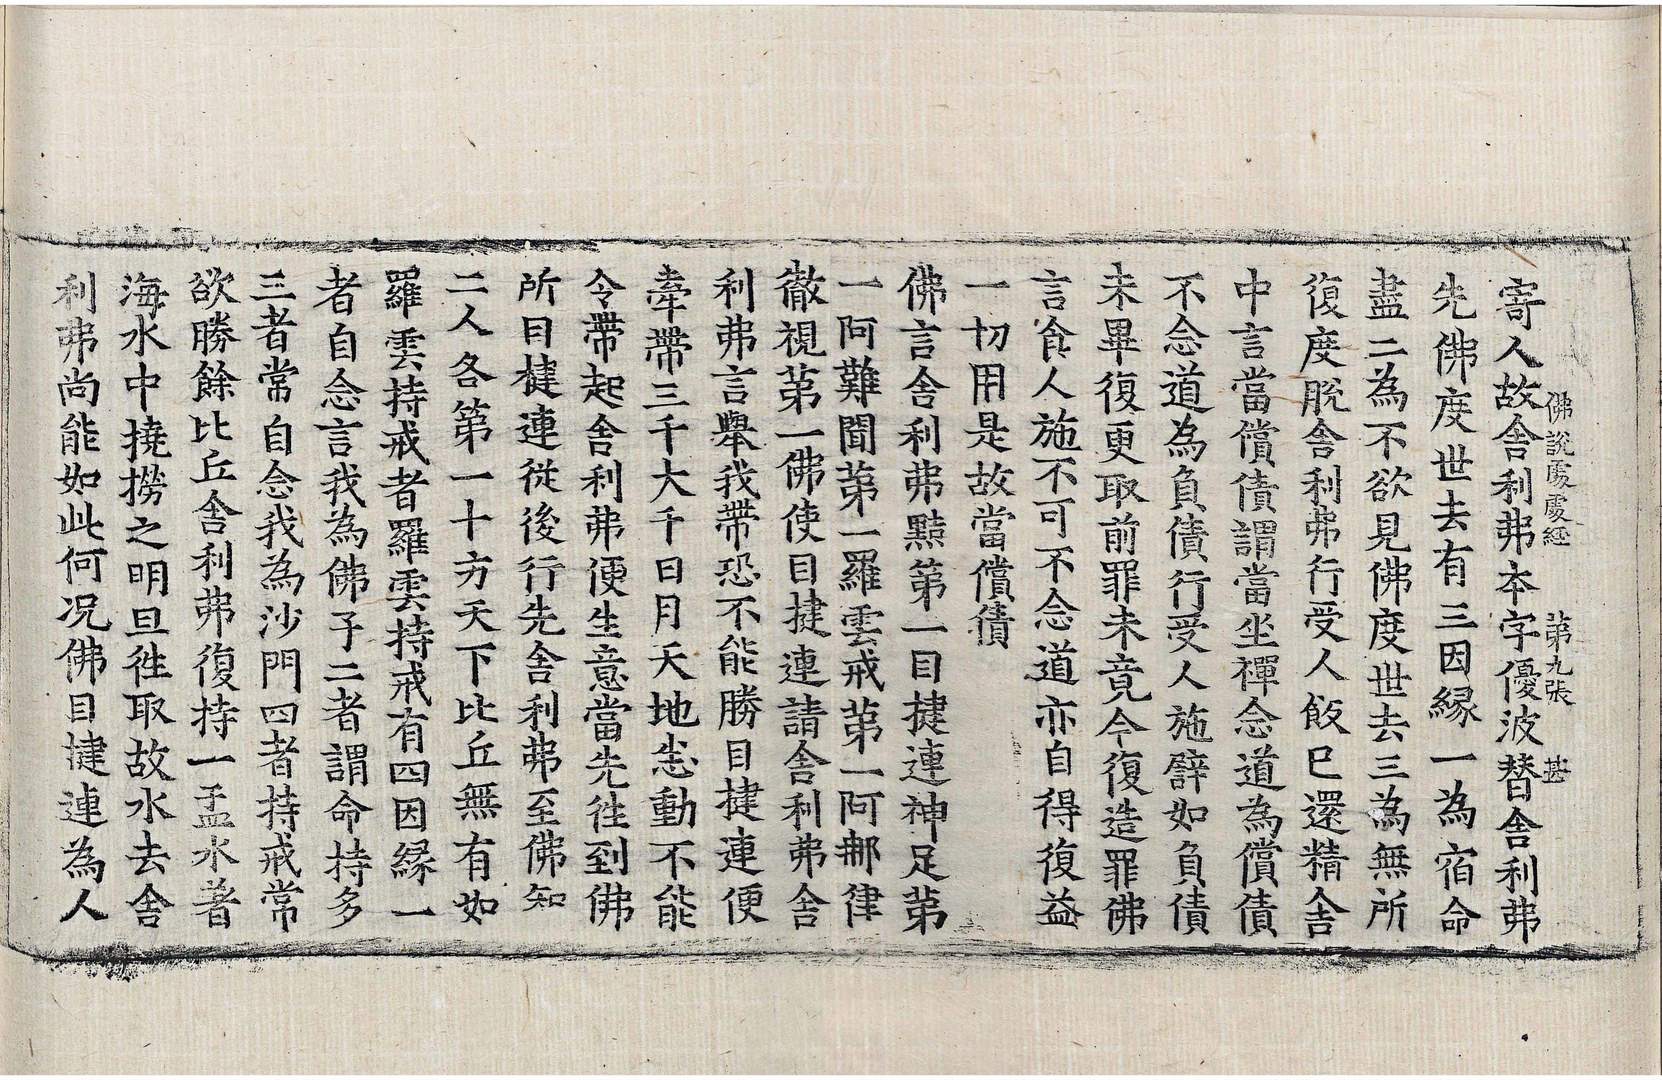 佛說處處經　第九張　甚
寄人故舍利弗本字優波替舍利弗
先佛度世去有三因緣一為宿命
盡二為不欲見佛度世去三為無所
復度脫舍利弗行受人飯已還精舍
中言當償債謂當坐禪念道為償債
不念道為負債行受人施譬如負債
未畢復更取前罪未竟今復造罪佛
言食人施不可不念道亦自得復益
一切用是故當償債
佛言舍利弗黠第一目揵連神足第
一阿難聞第一羅雲戒第一阿那律
徹視第一佛使目揵連請舍利弗舍
利弗言舉我帶恐不能勝目揵連便
牽帶三千大千日月天地恚動不能
令帶起舍利弗便生意當先往到佛
所目揵連從後行先舍利弗至佛知
二人各第一十方天下比丘無有如
羅雲持戒者羅雲持戒有四因緣一
者自念言我為佛子二者謂命持多
三者常自念我為沙門四者持戒常
欲勝餘比丘舍利弗復持一盂水著
海水中撓撈之明旦往取故水去舍
利弗尚能如此何況佛目揵連為人